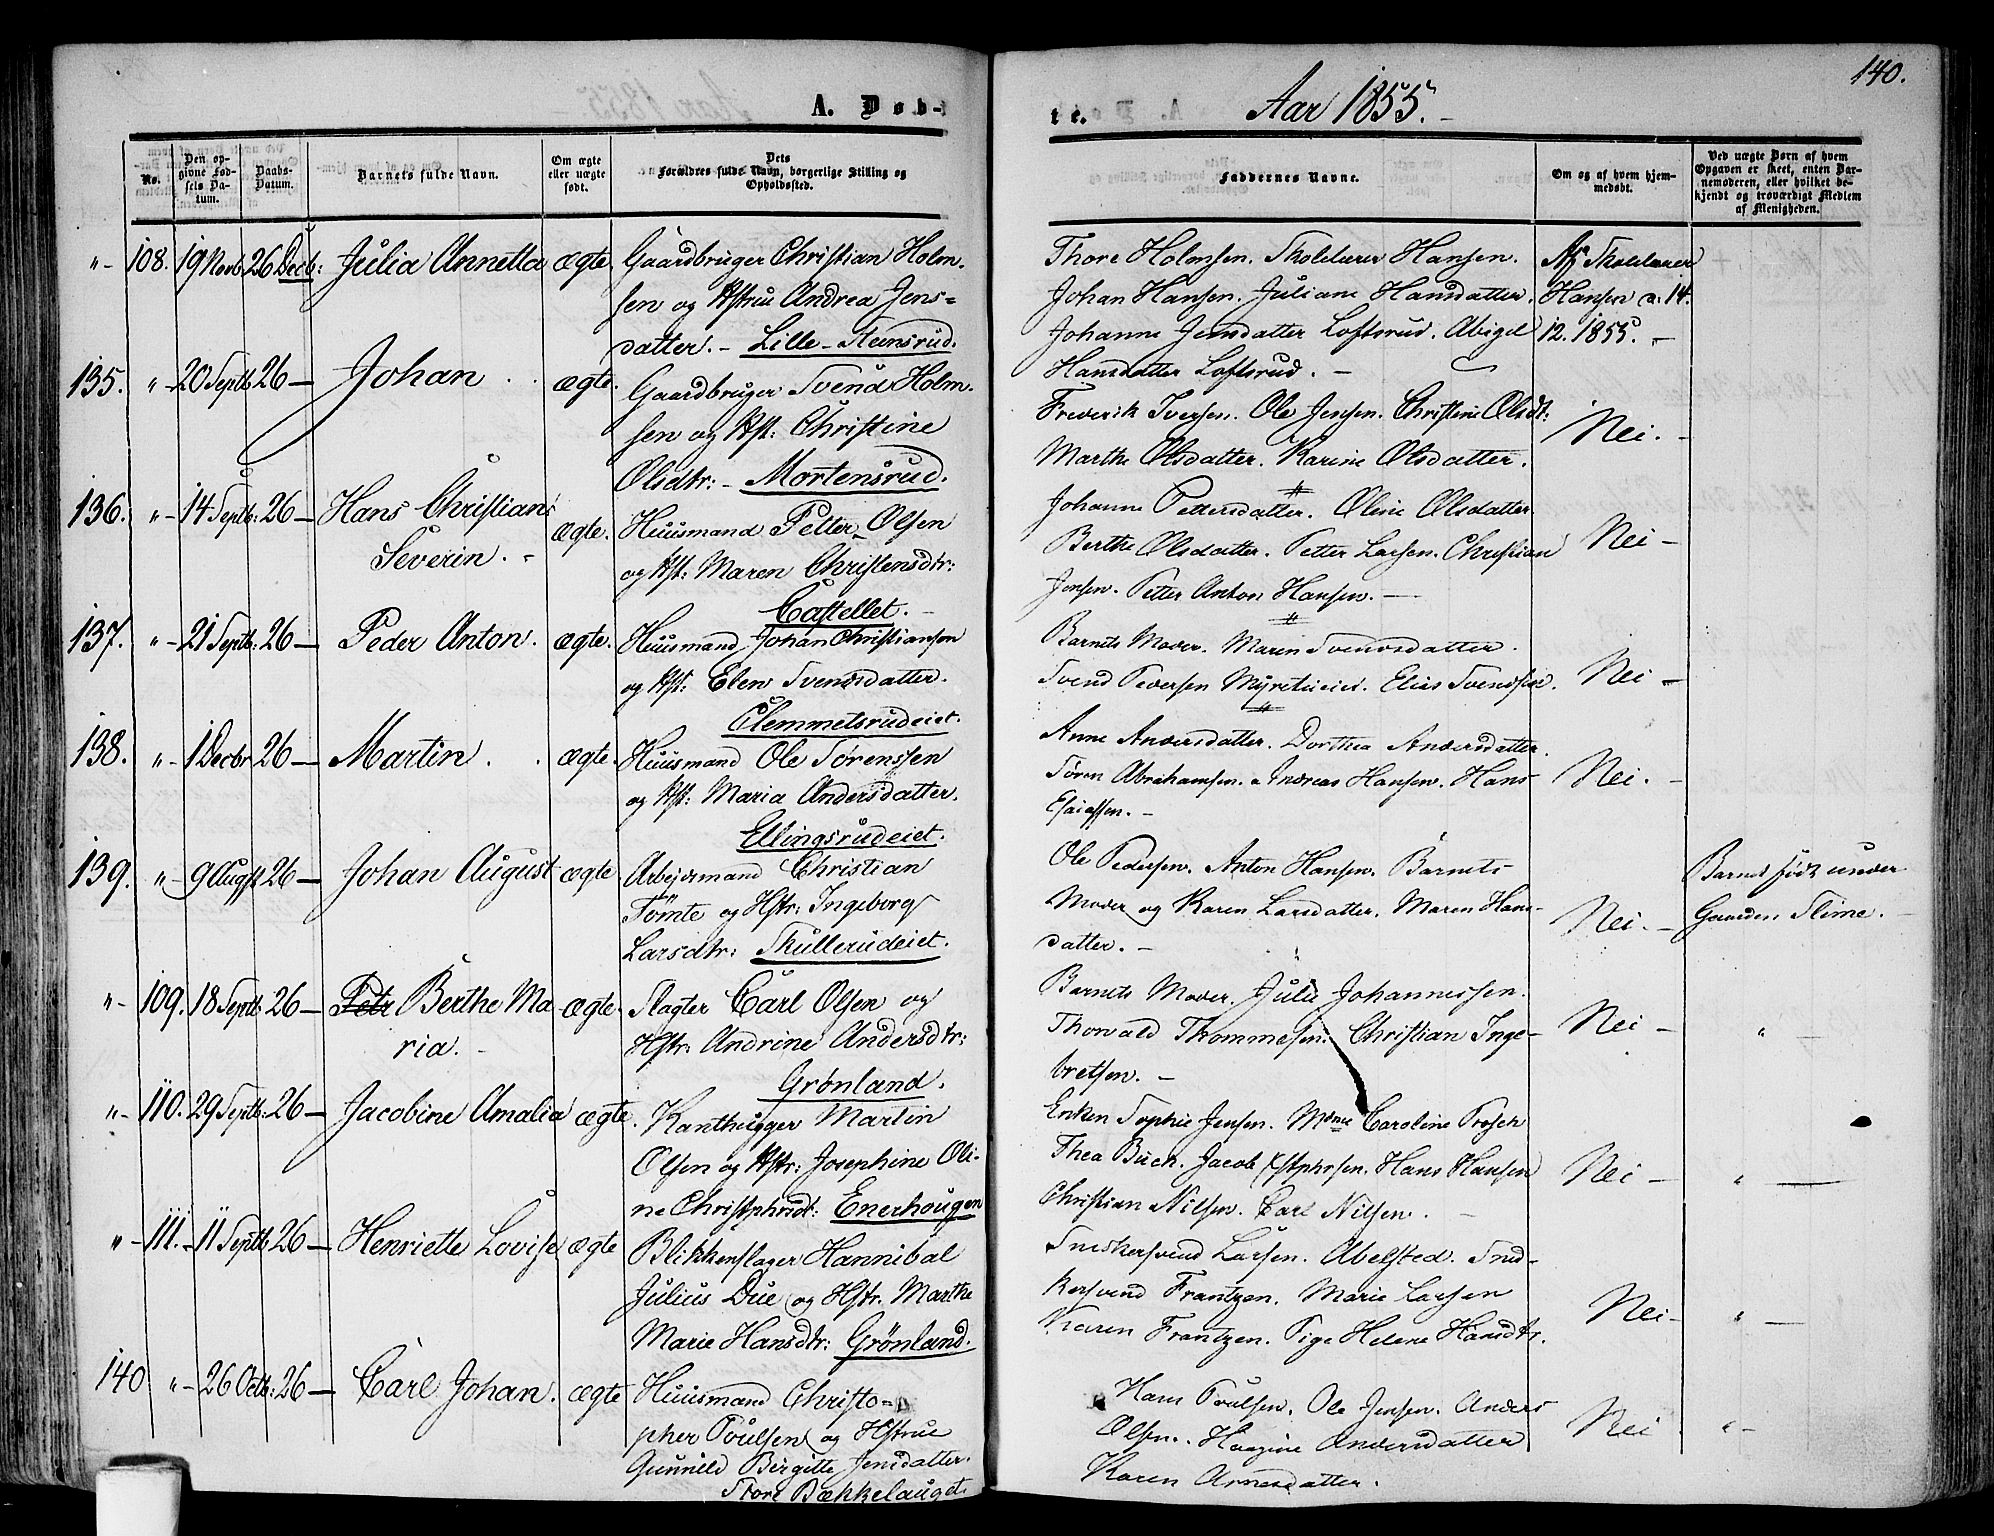 140.
A. Døb-
te.
Aar 1855.
No.
Den op-
givne Fød-
sels Da-
tum.
Daabs-
Datum.
Barnets fulde Navn.
Om ægte
eller uægte
født.
Dets
Forældres fulde Navn, borgerlige Stilling og
Opholdssted.
Faddernes Navne.
Om og af hvem hjem-
medøbt.
Ved uægte Børn af hvem
Opgaven er skeet, enten Bar-
nemoderen, eller hvilket be-
kjendt og troværdigt Medlem
af Menigheden.
"- 108. 19 Novb. 26 Decb: Julia Annetta ægte. Gaardbruger Christian Holm-
sen og Hstru Andrea Jens-
datter. - Lille-Steensrud.
Thore Holmsen. Skolelærer Hansen.
Johan Hansen. Juliane Hansdatter.
Johanne Jensdatter Loftsrud. Abigel
Hansdatter Loftsrud. -
Af Skolelærer
Hansen d: 14.
12. 1855. -
135. "- 20 Septb 26 - Johan . . ægte. Gaardbruger Svend Holm-
sen og Hst: Christine
Olsdtr: - Mortensrud.
Frederik Iversen. Ole Jensen. Christine Olsdt:
Marthe Olsdatter. Karine Olsdatter.
Nei. -
136. "- 14 Septb: 26 - Hans Christian
Severin. - ægte. Huusmand Petter Olsen
og Hst: Maren Christensdtr:
Castellet. -
Johanne Pettersdatter. Oline Olsdatter.
Berthe Olsdatter. Petter Larsen. Christian
Jensen. Petter Anton Hansen. -
Nei -
137. "- 21 Septb: 26 - Peder Anton. ægte. Huusmand Johan Christiansen
og Hst: Elen Svendsdatter.
Clemmetsrudeiet.
Barnets Moder. Maren Svendsdatter.
Svend Pedersen Myrstueiet. Elias Svendsen.
Nei -
138. "- 1 Decbr 26 - Martin. . ægte. Huusmand Ole Sørenssen
og Hst: Maria Andersdatter.
Ellingsrudeiet.
Anne Andersdatter. Dorthea Andersdatter.
Søren Abrahamsen. Andreas Hansen. Hans
Esaiassen. -
Nei. -
139. "- 9 Augst 26 - Johan August ægte Arbejdsmand Christian
Tømte og Hstr: Ingeborg
Larsdtr: Skullerudeiet.
Ole Pedersen. Anton Hansen. Barnets
Moder og Karen Larsdatter. Maren Hans-
datter. -
Nei. -
Barnet født under
Gaarden Slime. -
"- 109. 18 Septb 26 - Petr Berthe Ma-
ria. - ægte. Slagter Carl Olsen og
Hstr: Andrine Andersdtr:
Grønland.
Barnets Moder. Julie Johannessen.
Thorvald Thommesen. Christian Inge-
bretsen. -
Nei - "
"- 110. 29 Septb: 26 - Jacobine Amalia ægte. Kanthugger Martin
Olsen og Hstr: Josephine Oli-
ne Christphrsdt: Enerhougen
Enken Sophie Jensen. Mdme Caroline Trosch
Thea Buch. Jacob Christphrsen. Hans Hansen
Christian Nilsen. Carl Nilsen. -
Nei - " -
"- 111. - 11 Septb 26 - Henriette Lovise ægte Blikkenslager Hannibal
Julius Due og Hstr. Marthe
Marie Hansdtr: Grønland.
Snedkersvend Larsen. Abelsted. Sned-
kersvend Frantzen. Marie Larsen
Karen Frantzen. Pige Helene Hansdtr.
Nei - " -
140 "- 26 Octb: 26 - Carl Johan. ægte Huusmand Christo-
pher Poulsen og Hstrue
Gunnild Birgitte Jensdatter.
Store Bækkelauget.
Hans Poulsen. Ole Jensen. Anders
Olsen. Haagine Andersdatter
Karen Arnesdatter.
Nei " -